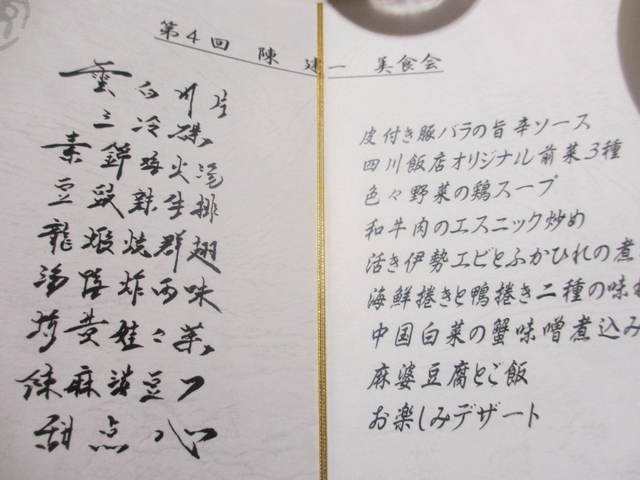 第4回 陳建一 美食会
雲白川片
三冷碟
素鮮 火湯
豆豉辣牛排
龍蝦焼群翅
海陸炸両味
黄娃々菜
陳麻婆豆フ
甜点心
皮付き豚バラの旨辛ソース
四川飯店オリジナル前菜3種
色々野菜の鶏スープ
和牛肉のエスニック炒め
活き伊勢エビとふかひれの煮
海鮮捲きと鴨捲き二種の味
中国白菜の蟹味噌煮込み
麻婆豆腐とご飯
お楽しみデザート